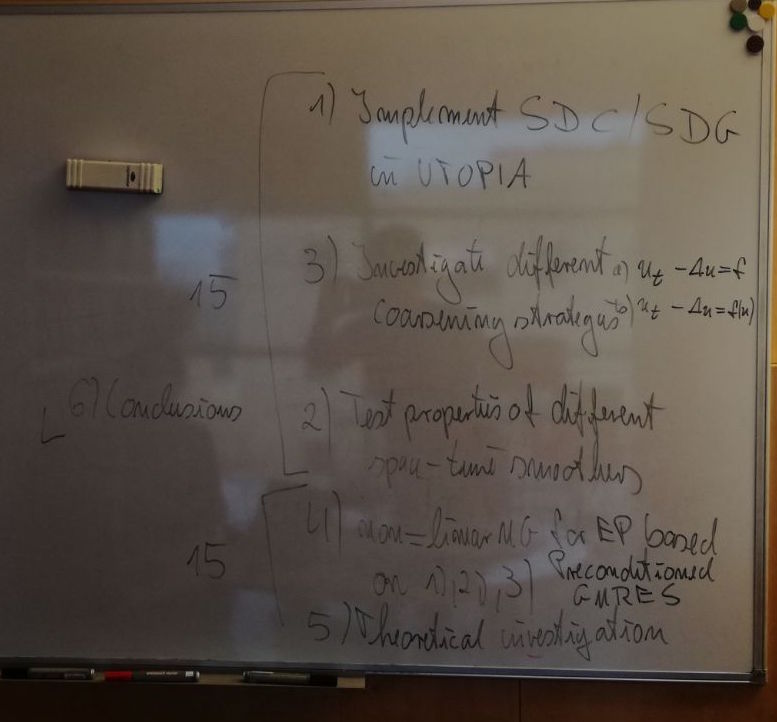 1) Implement SDC/SDG
in UTOPIA
3) Investigate different a) u_t - Δu = f
coarsening strategies b) u_t - Δu = f(u)
15
6) Conclusions
2) Test properties of different
space-time smoothers
4) non-linear MG for EP based
on 1), 2), 3) Preconditioned
GMRES
15
5) Theoretical investigation